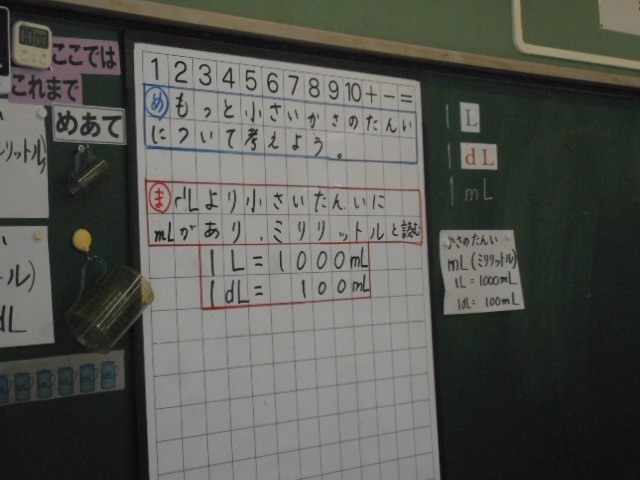 ここでは
これまで
めあて
リットル)
トル)
dL
1 2 3 4 5 6 7 8 9 10 + − =
め もっと小さいかさのたんい
について考えよう。
ま dLより小さいたんいに
mLがあり、ミリリットルと読む
1L=1000mL
1dL= 100mL
1 L
1 dL
1 mL
かさのたんい
mL(ミリリットル)
1L=1000mL
1dL=100mL